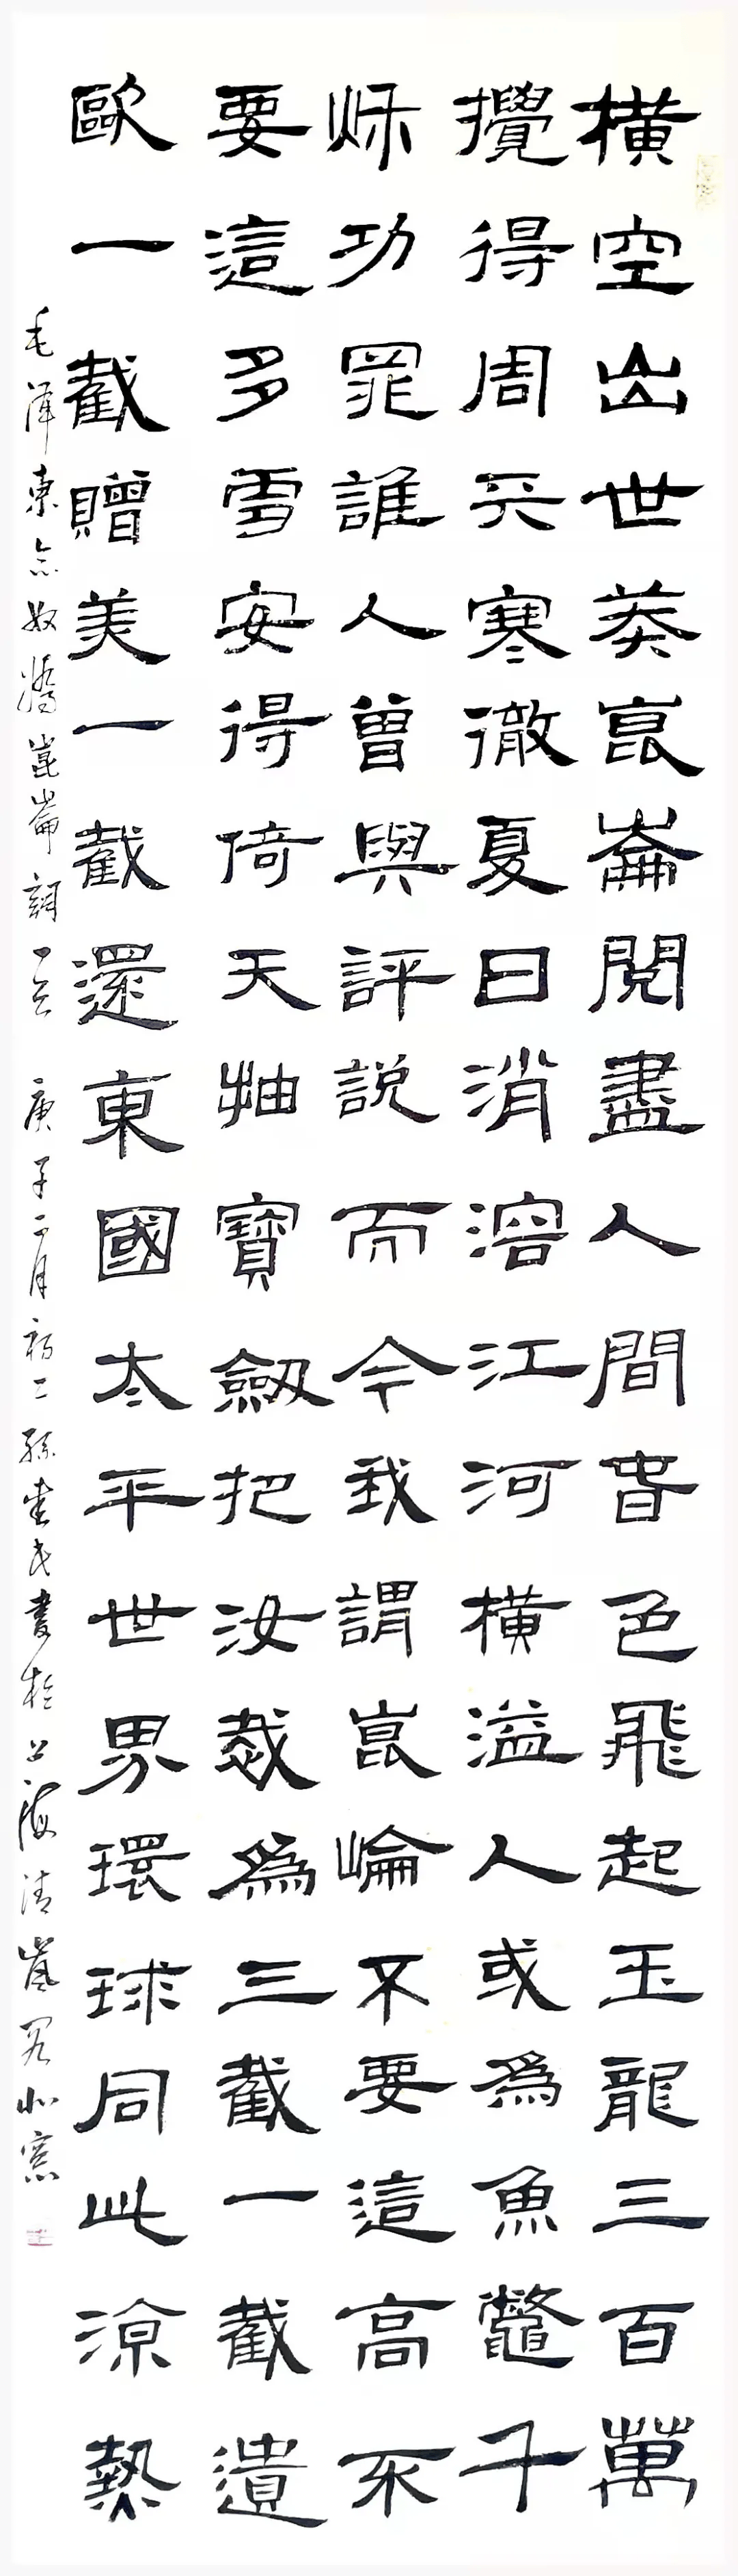 橫空出世莽崑崙閱盡人間春色飛起玉龍三百萬
攪得周天寒徹夏日消溶江河橫溢人或爲魚鼈千
秌功罪誰人曾與評説而今我謂崑崙不要這高不
要這多雪安得倚天抽寶劔把汝裁爲三截一截遺
歐一截贈美一截還東國太平世界環球同此涼熱
毛澤東念奴嬌崑崙詞一首 庚子二月初二孫愛民書於上海清嵐閣北窗